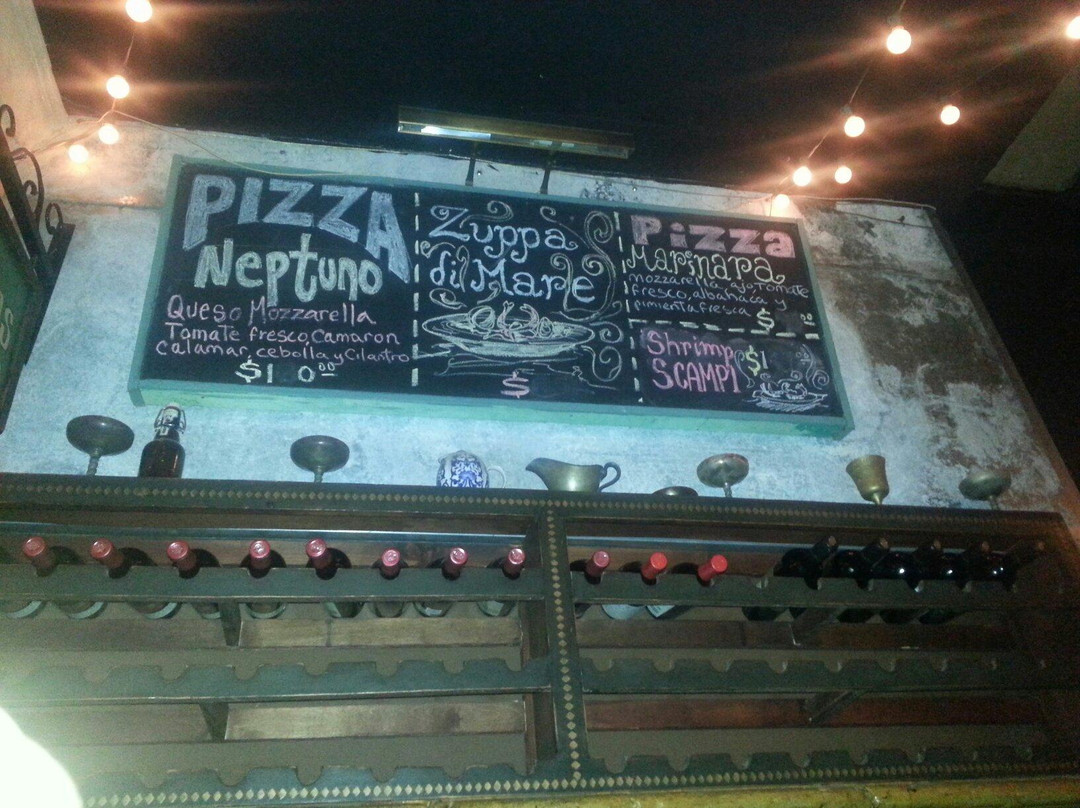 PIZZA
Neptuno
Queso Mozzarella
Tomate fresco, Camaron
Calamar, cebolla y Cilantro
$1 0.00
Zuppa
di Mare
$
Pizza
Marinara
mozzarella, ajo, Tomate
fresco, albahaca y
pimienta fresca
$ 00
Shrimp
SCAMPI
$1